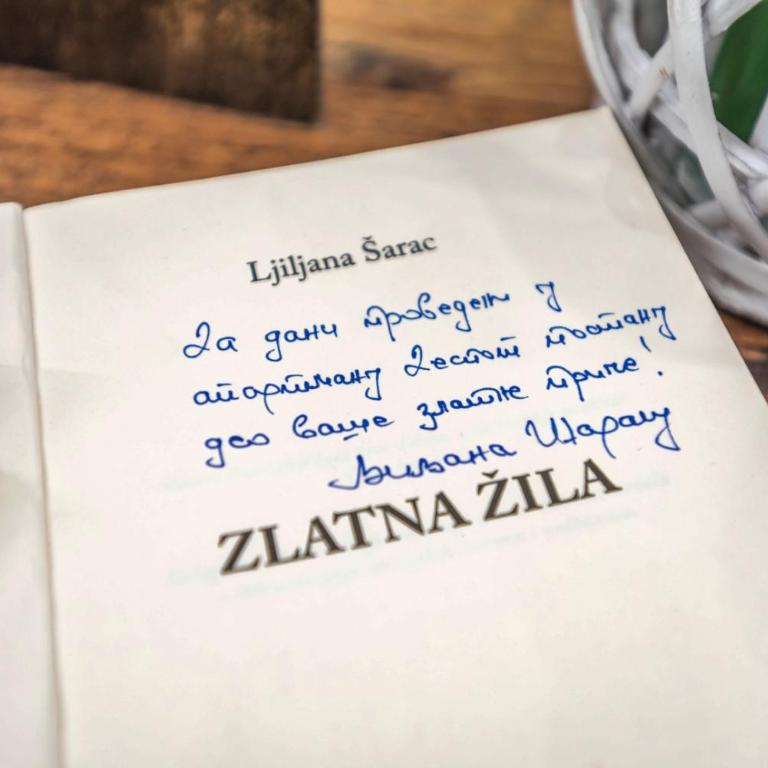 Ljiljana Šarac
Да дани проведени у
апартману постану
део ваше златне приче!
Љиљана Шарац
ZLATNA ŽILA